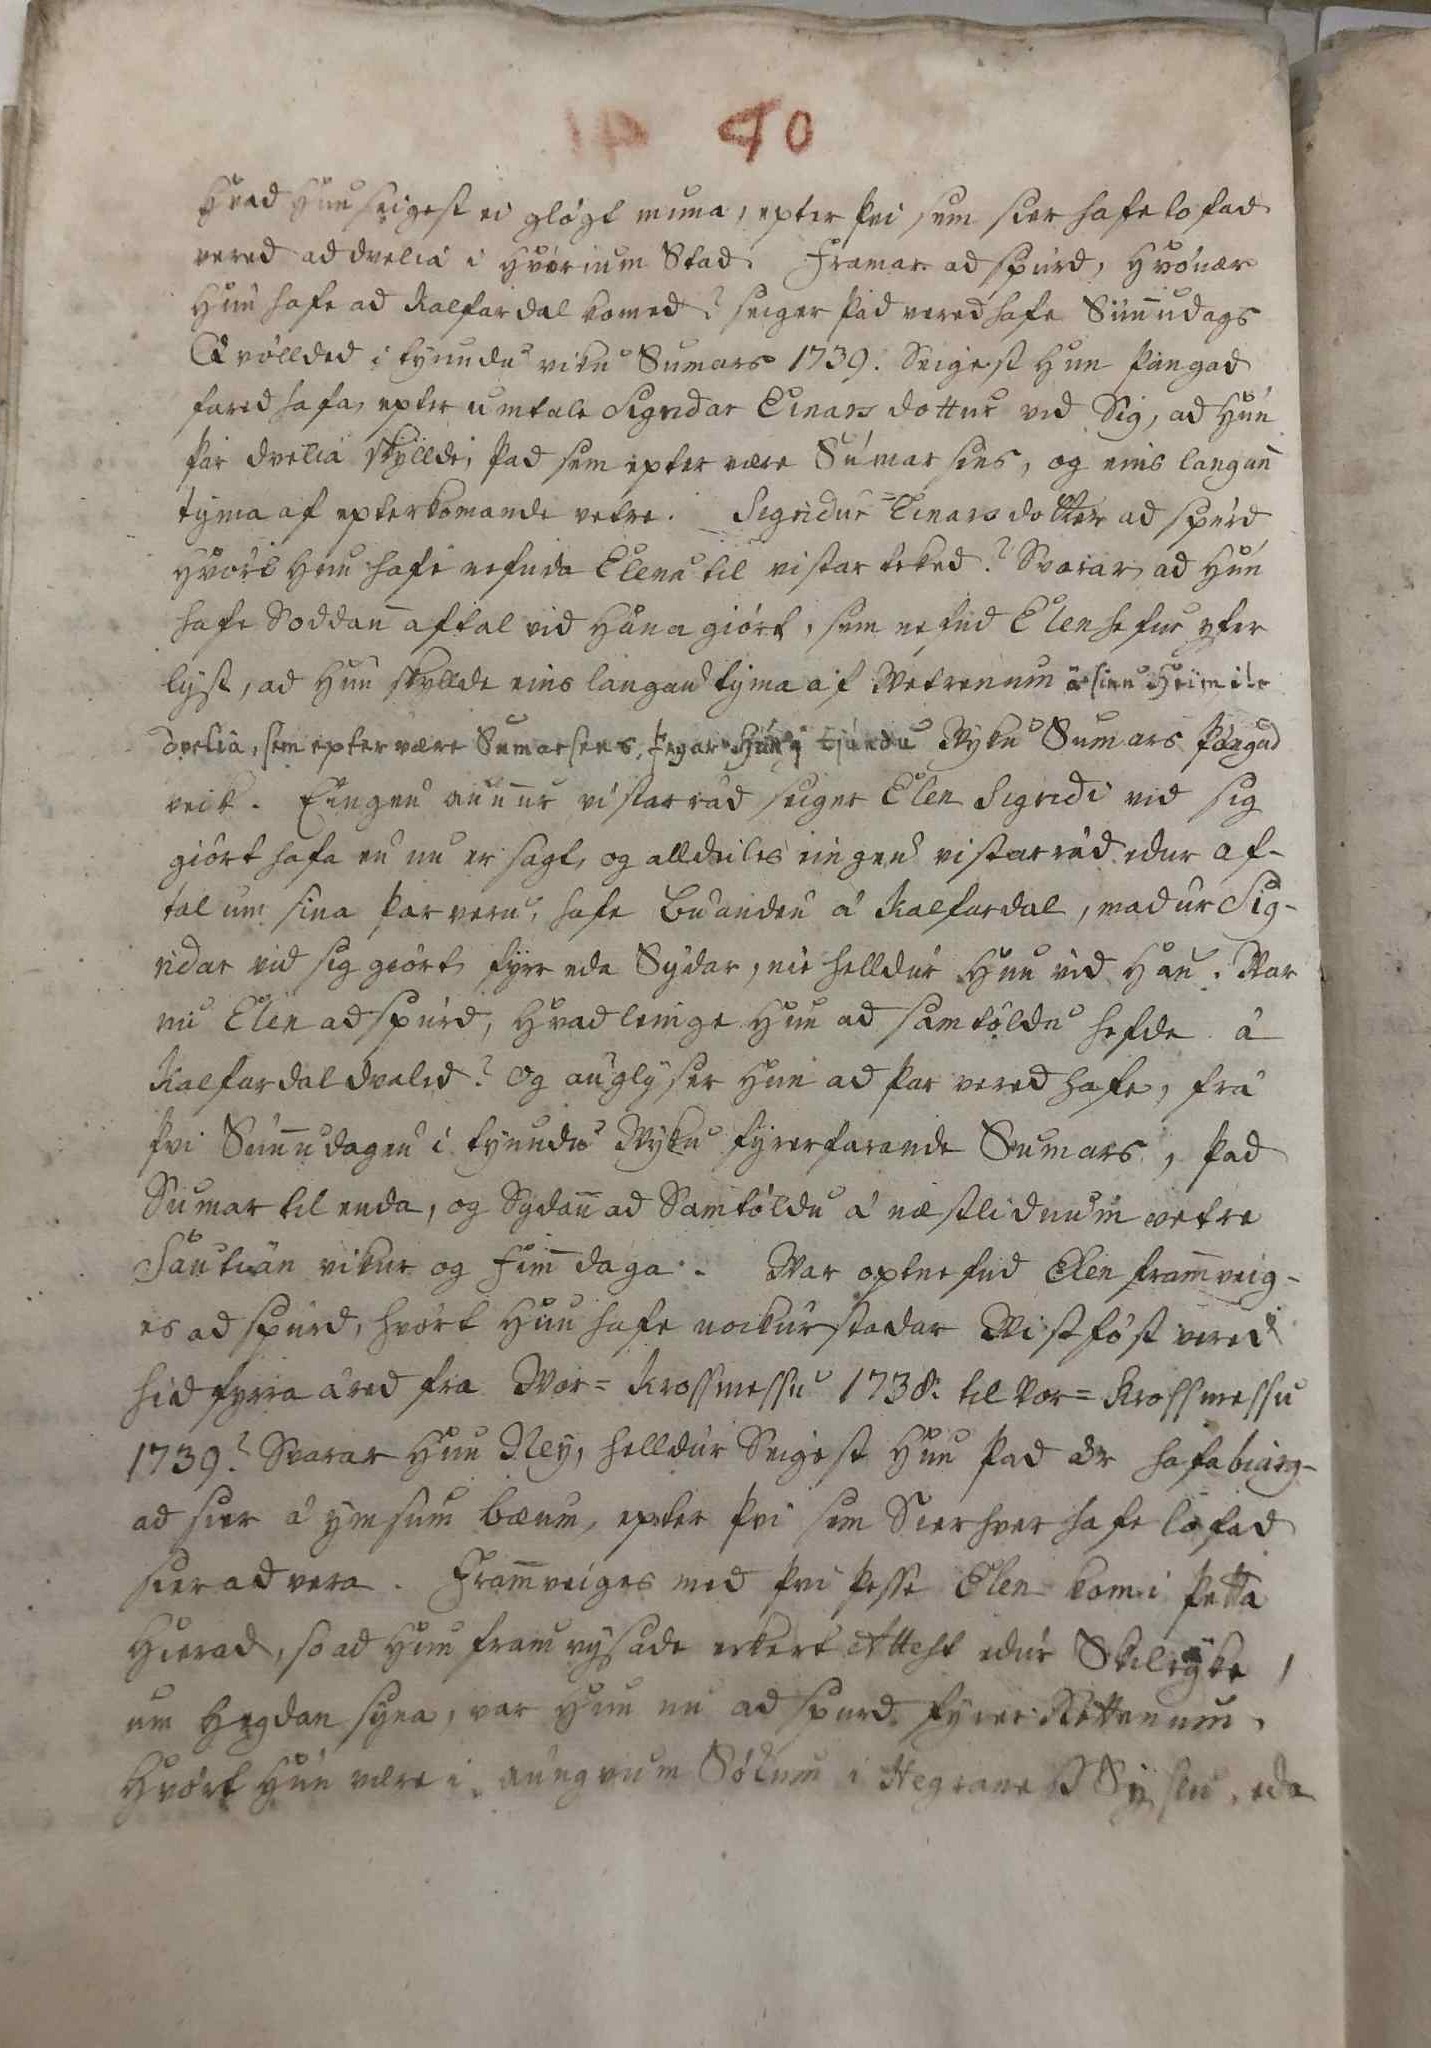 40
Hvad Hun seigest ei glógt muna, epter þvi sem sier hafe lofad
vered ad dvelia i hvórium Stad. Framar ad spurd, hvónær
Hun hafe ad Kalfardal komed? seiger þad vered hafe Sunnudags
Qvóllded i tyundu viku Sumars 1739. Seigest Hun þangad
fared hafa, epter umtale Sigridar Einars dottur vid Sig, ad Hun
þar dvelia skyllde, þad sem epter være Sumarsins, og eins langann
tyma af epterkomande vetre. Sigridur Einarsdotter ad spurd
hvórt Hun hafe nefnda Elenu til vistar teked? Svarar, ad Hun
hafe Soddann aftal vid Hana giórt, sem nefnd Elen hefur yfer
lyst, ad Hun skyllde eins langan tyma af Vetrenum á sinu Heimile
dvelia, sem epter være Sumarsens, þegar Hun i tiundu Vyku Sumars þangad
veik. Eingen annur vistarrád seiger Elen Sigridi vid sig
giórt hafa en nu er sagt, og alldeiles eingen vistarrád edur af-
tal um sina þarveru, hafe buanden á Kalfardal, madur Sig-
ridar vid sig giórt fyrr eda Sydar, nie helldur Hun vid Han. Var
nu Elen ad spurd, hvad leinge Hun ad samtóldu hefde á
Kalfardal dvaled? og auglyser Hun ad þar vered hafe, frá
þvi Sunnudagen i tyundu Vyku fyrerfarande Sumars, þad
Sumar til enda, og Sydann ad Samtóldu á næstlidnum vetre
Sautián vikur og Fimm daga. Var optnefnd Elen frammveig-
es ad spurd, hvórt Hun hafe nockurstadar Vistfóst vered
hid fyrra áred fra Vor= Krossmessu 1738. til Vor= Krossmessu
1739? Svarar Hun Ney, helldur Seigest Hun þad ár hafa biarg-
ad sier á ymsum bæum, epter þvi sem Sierhver hafe lofad
sier ad vera. Frammveiges med þvi þesse Elen kom i þetta
Hierad, so ad Hun framvysade eckert Attest edur Skilryke,
um Hegdan syna, var Hun nu ad spurd fyrer Rettenum,
Hvórt Hun være i aungvum Sókum i Hegraness Syslu, eda